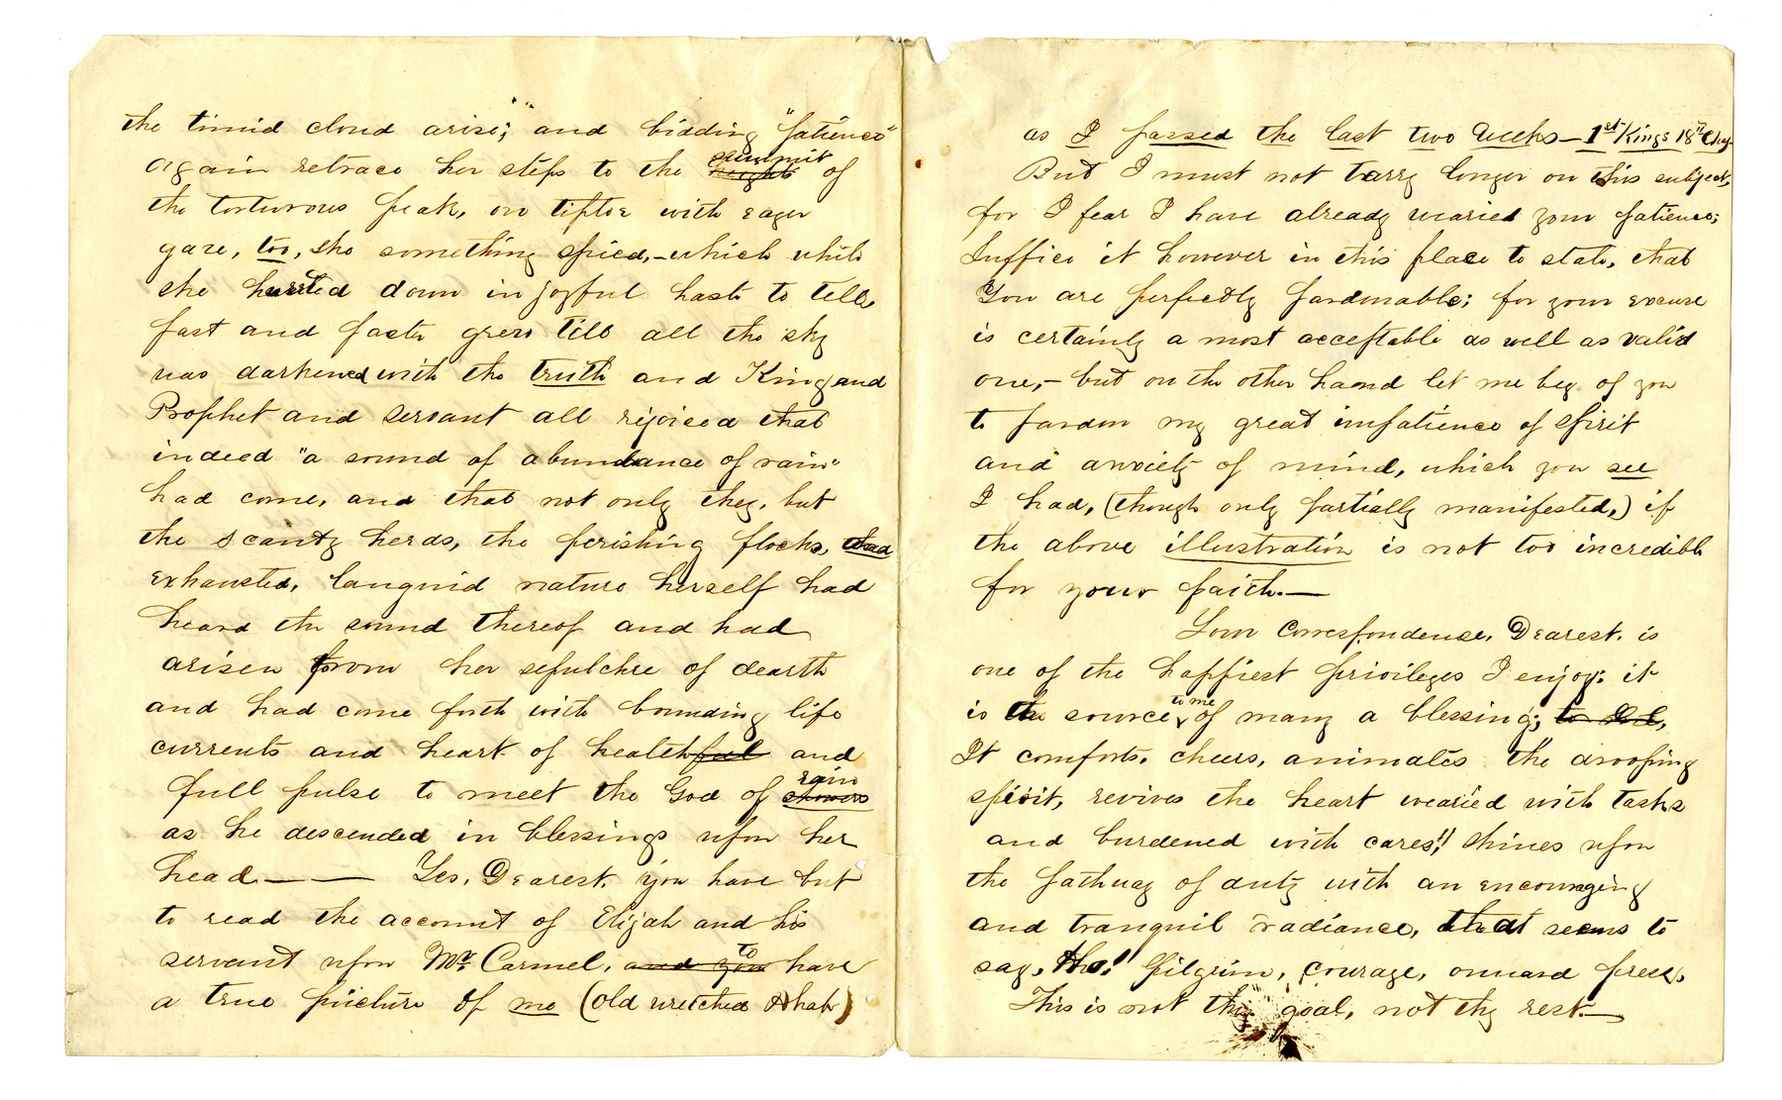 the timid cloud arise;" and bidding "patience"
again retrace her steps to the summit heights of
the torturous peak, on tiptoe with eager
gaze, too, she something spied,-which while
she hurried down in joyful haste to tell,
fast and faster grew till all the sky
was darkened with the truth and King and
Prophet and servant all rejoiced that
indeed "a sound of abundance of rain"
had come, and that not only they, but
the scanty herds, the perishing flocks, and
exhausted, languid nature herself had
heard the sound thereof and had
arisen from her sepulchre of dearth
and had come forth with bounding life
currents and heart of healthful and
full pulse to meet the God of rain showers
as he descended in blessings upon her
head—— Yes, Dearest, you have but
to read the account of Elijah and his
servant upon Mt. Carmel, and you to have
a true picture of me (old wretched Ahab)
as I passed the last two weeks—1st Kings 18th Chap.
But I must not tarry longer on this subject,
for I fear I have already wearied your patience;
Suffice it however in this place to state, that
You are perfectly pardonable; for your excuse
is certainly a most acceptable as well as valid
one,- but on the other hand let me beg of you
to pardon my great impatience of spirit
and anxiety of mind, which you see
I had, (though only partially manifested,) if
the above illustration is not too incredible
for your faith.—
Your Correspondence, Dearest, is
one of the happiest privileges I enjoy: it
is the source to me of many a blessing;
It comforts, cheers, animates the drooping
spirit, revives the heart wearied with tasks
and burdened with cares!! Shines upon
the pathway of duty with an encouraging
and tranquil radiance, that seems to
say, Ho! Pilgrim, courage, onward press,
This is not thy goal, not thy rest.—